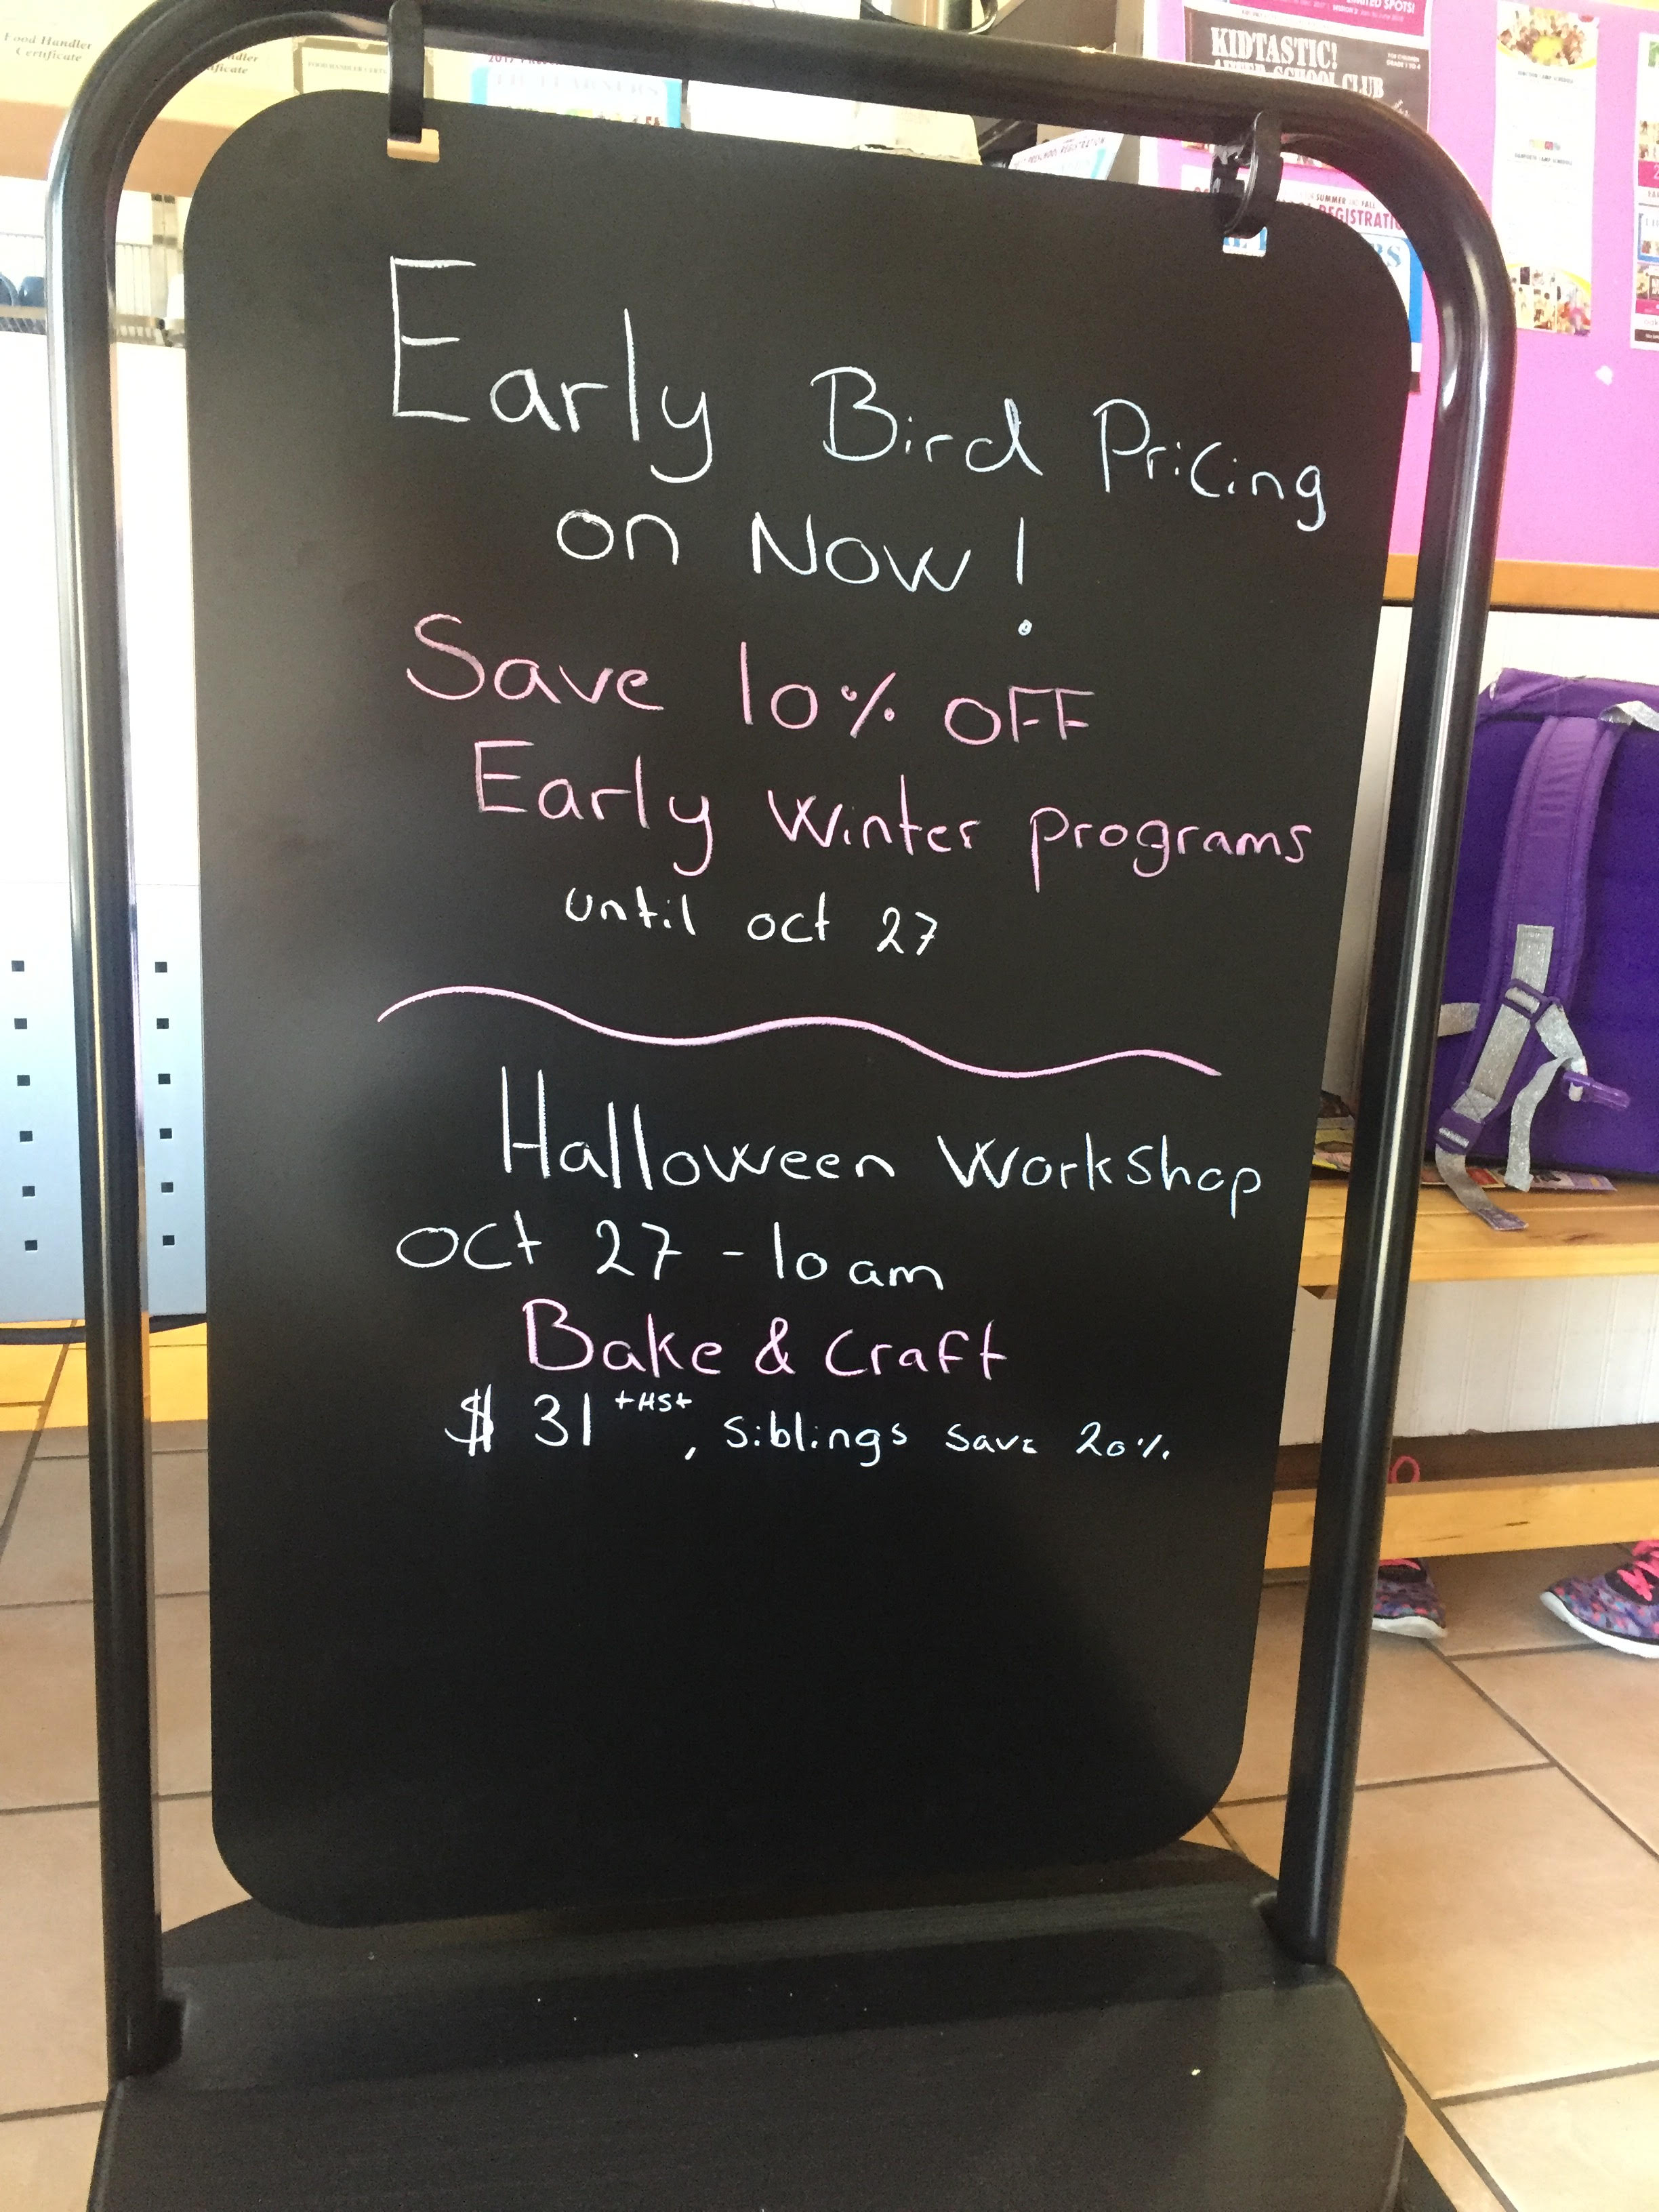 Food Handler
Certificate
KIDTASTIC!
AFTER-SCHOOL CLUB
SUMMER
FALL
REGISTRATIO
Early Bird Pricing
on Now!
Save 10% OFF
Early Winter programs
until oct 27
Halloween Workshop
Oct 27 - 10 am
Bake & Craft
$31 +HST, siblings save 20%